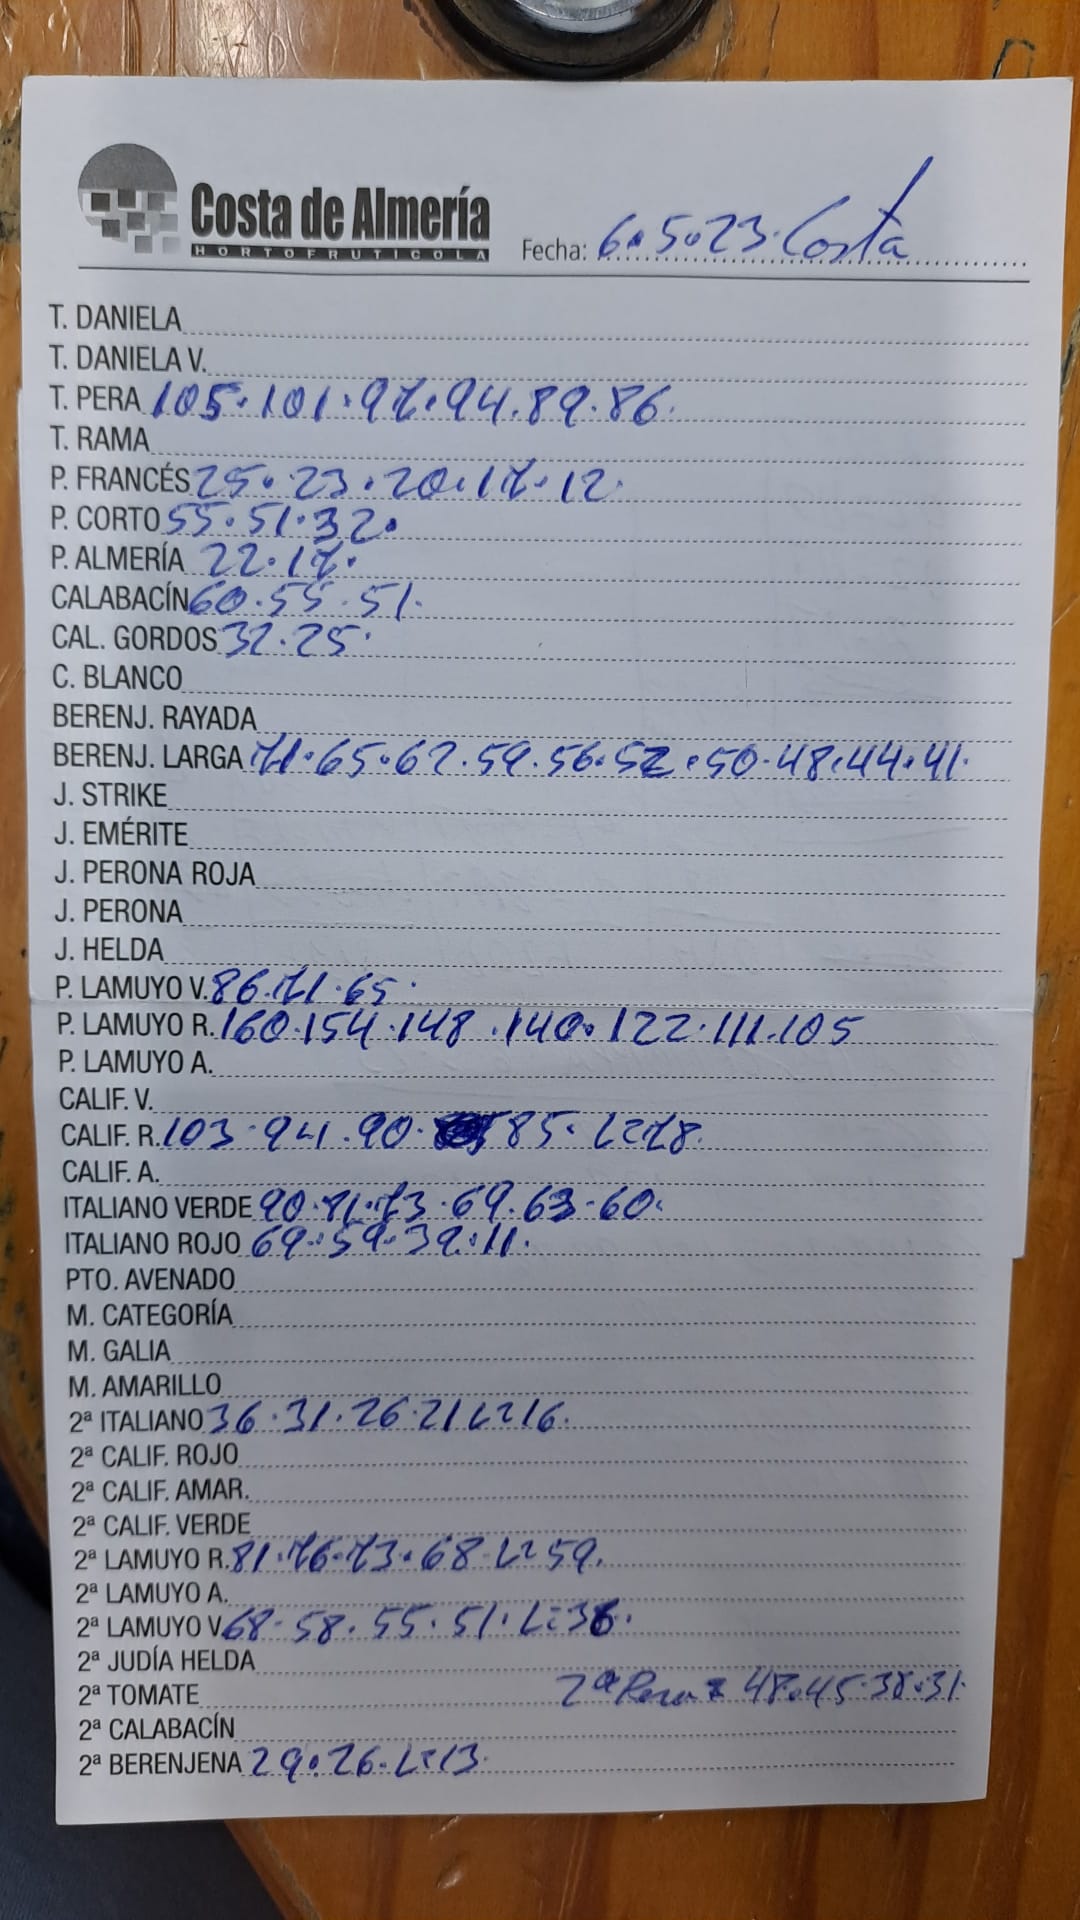 Costa de Almería
HORTOFRUTICOLA
Fecha: 6.5.23. Costa
T. DANIELA
T. DANIELA V.
T. PERA 105.101.97.94.89.86.
T. RAMA
P. FRANCÉS 25.23.20.17.12.
P. CORTO 55.51.32.
P. ALMERÍA 22.17.
CALABACÍN 60.55.51.
CAL. GORDOS 32.25.
C. BLANCO
BERENJ. RAYADA
BERENJ. LARGA 71.65.62.59.56.52.50.48.44.41.
J. STRIKE
J. EMÉRITE
J. PERONA ROJA
J. PERONA
J. HELDA
P. LAMUYO V. 86.71.65.
P. LAMUYO R. 160.154.148.140.122.111.105
P. LAMUYO A.
CALIF. V.
CALIF. R. 103.94.90. 85. L=78.
CALIF. A.
ITALIANO VERDE 90.81.73.69.63.60.
ITALIANO ROJO 69.59.39.11.
PTO. AVENADO
M. CATEGORÍA
M. GALIA
M. AMARILLO
2ª ITALIANO 36.31.26.21 L=16.
2ª CALIF. ROJO
2ª CALIF. AMAR.
2ª CALIF. VERDE
2ª LAMUYO R. 81.76.73.68. L=59.
2ª LAMUYO A.
2ª LAMUYO V. 68.58.55.51. L=36.
2ª JUDÍA HELDA
2ª TOMATE 2ª Pera = 48.45.38.31.
2ª CALABACÍN
2ª BERENJENA 29.26. L=13.